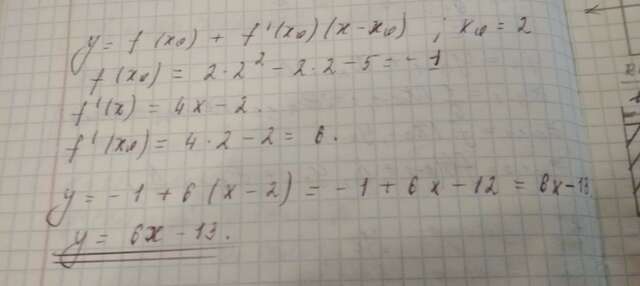 y = f(x₀) + f'(x₀)(x-x₀) ; x₀ = 2
f(x₀) = 2·2² - 2·2 - 5 = -1
f'(x) = 4x - 2.
f'(x₀) = 4·2 - 2 = 6.
y = -1 + 6(x-2) = -1 + 6x - 12 = 6x-13
y = 6x - 13.